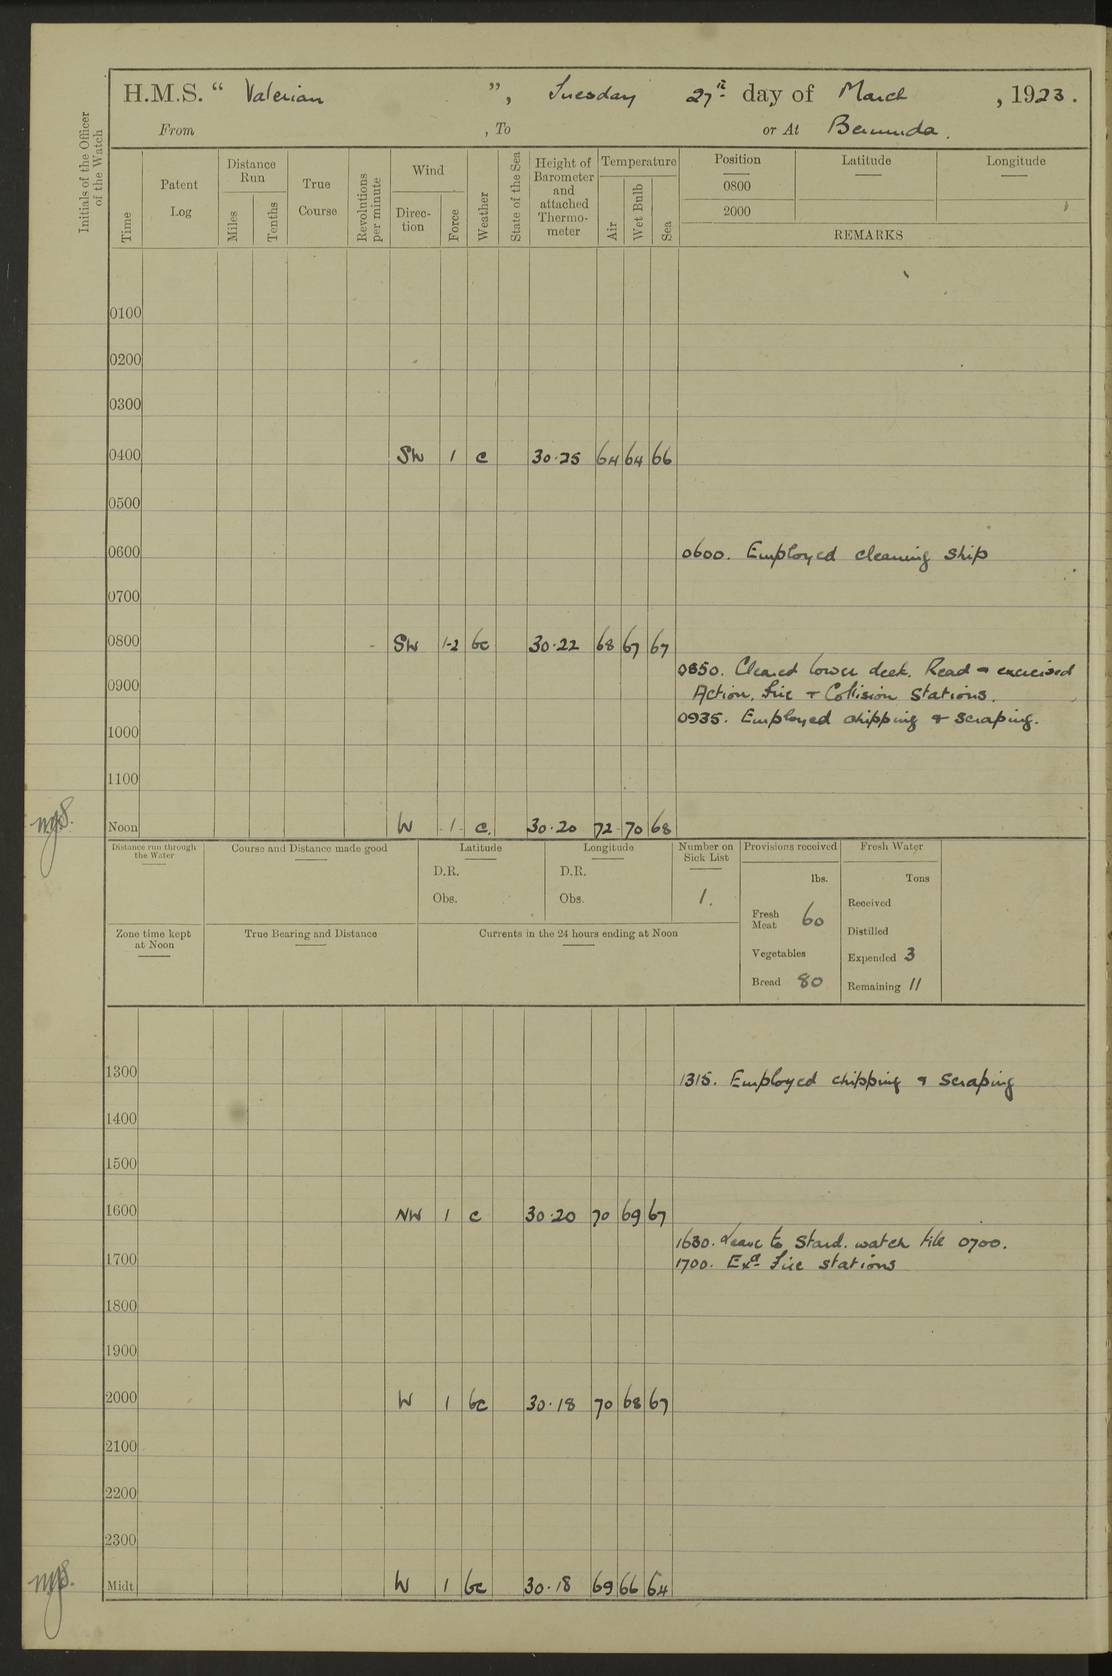 H.M.S. “ Valerian ”, Tuesday 27th day of March , 1923.
From , To or At Bermuda.
Initials of the Officer of the Watch
Time
Patent Log
Distance Run
Miles
Tenths
True Course
Revolutions per minute
Wind
Direc-tion
Force
Weather
State of the Sea
Height of Barometer and attached Thermo-meter
Temperature
Air
Wet Bulb
Sea
Position Latitude Longitude
0800
2000
REMARKS
0100
0200
0300
0400 SW 1 c 30.25 64 64 66
0500
0600 0600. Employed cleaning ship
0700
0800 SW 1-2 bc 30.22 68 67 67
0850. Cleared lower deck. Read & exercised
0900 Action, Fire & Collision Stations.
0935. Employed chipping & scraping.
1000
1100
Noon W 1 c. 30.20 72 70 68
Distance run through the Water
Course and Distance made good
Latitude
D.R.
Obs.
Longitude
D.R.
Obs.
Number on Sick List
1.
Provisions received
lbs.
Fresh Meat 60
Vegetables
Bread 80
Fresh Water
Tons
Received
Distilled
Expended 3
Remaining 11
Zone time kept at Noon
True Bearing and Distance
Currents in the 24 hours ending at Noon
1300 1315. Employed chipping & scraping
1400
1500
1600 NW 1 c 30.20 70 69 67
1630. Leave to Starbd. watch till 0700.
1700 1700. Exd Fire stations
1800
1900
2000 W 1 bc 30.18 70 68 67
2100
2200
2300
Midt. W 1 bc 30.18 69 66 64